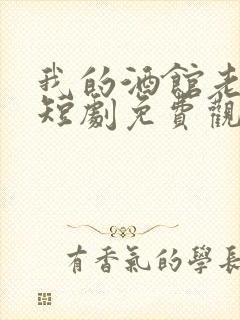 我的酒館老
短劇免費觀
有香氣的學長